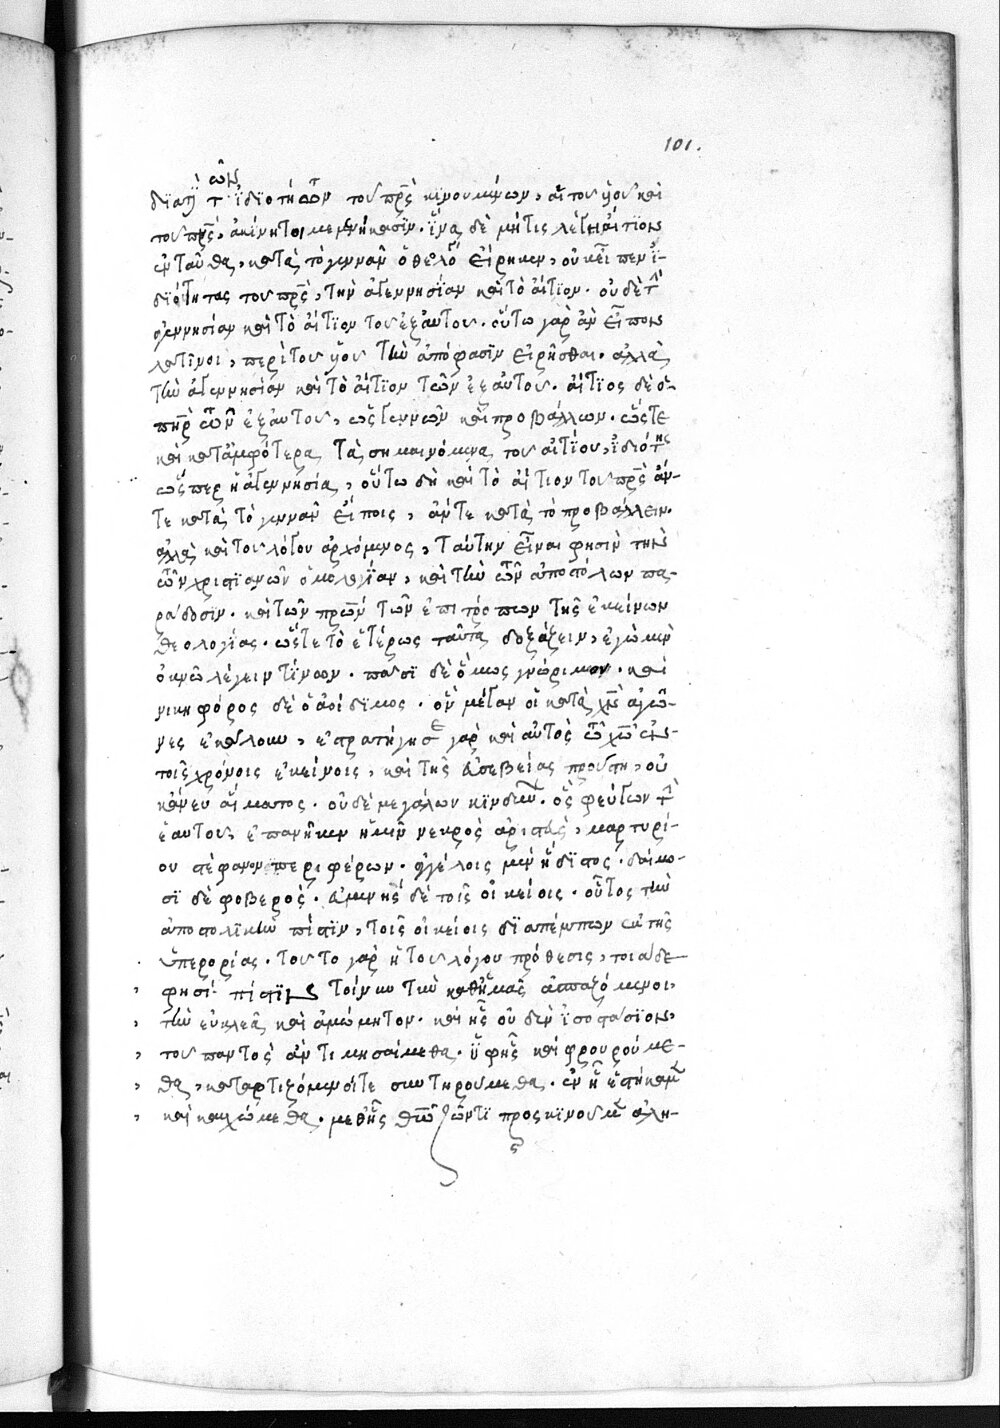 101.
τοῦ πρς, ἀκίνητοι μεμενήκασιν. ἵνα δὲ μήτις λέγῃ αἴτιον
ἐνταῦθα, κατὰ τὸ γεννᾶν ὁ θεολό εἴρηκεν, οὐκ εἶπεν ἰ-
διότητας τοῦ πρς, τὴν ἀγεννησίαν καὶ τὸ αἴτιον. οὐδὲ τὴν
γεννησίαν καὶ τὸ αἴτιον τοῦ ἐξ αὐτοῦ. οὕτω γὰρ ἂν εἶπον
λατῖνοι, περὶ τοῦ υἱοῦ τὴν ἀπόφασιν εἰρῆσθαι. ἀλλὰ
τὴν ἀγεννησίαν καὶ τὸ αἴτιον τῶν ἐξ αὐτοῦ. αἴτιος δὲ ὁ
πηρ τῶν ἐξ αὐτοῦ, ὡς γεννῶν καὶ προβάλλων. ὥστε
καὶ κατ' ἀμφότερα τὰ σημαινόμενα τοῦ αἰτίου, ἰδιότης
ὥσπερ ἡ ἀγεννησία, οὕτω δὴ καὶ τὸ αἴτιον τοῦ πρς ἄν-
τε κατὰ τὸ γεννᾶν εἴποις, ἄν τε κατὰ τὸ προβάλλειν.
ἀλλὰ καὶ τοῦ λόγου ἀρχόμενος, ταύτην εἶναι φησὶν τὴν
τῶν χριστιανῶν ὁμολογίαν, καὶ τὴν τῶν ἀποστόλων πα-
ράδοσιν. καὶ τῶν πρων τῶν ἐπιτρόπων τῆς ἐκείνων
θεολογίας. ὥστε τὸ ἑτέρως ταῦτα δοξάζειν, ἐγὼ μὲν
ὀκνῶ λέγειν τίνων. πᾶσι δὲ ὅμως γνώριμον. καὶ
νικηφόρος δὲ ὁ ἀοίδιμος. ὃν μέγαν οἱ κατὰ χν ἀγῶ-
νες ἐκάλουν, ἐστρατήγησε γὰρ καὶ αὐτὸς τῶ χω ἐν
τοῖς χρόνοις ἐκείνοις, καὶ τῆς ἀσεβείας προὔστη, οὐ
κἄνευ αἵματος. οὐδὲ μεγάλων κινδύνων. ὃς φεύγων
ἑαυτοῦ, ἐπανῆκεν ἡμῖν νεκρὸς ἀριστεὺς, μαρτυρί-
ου στέφανον περιφέρων. ἀγγέλοις μὲν ἥδιστος. δαίμο-
σι δὲ φοβερὸς. εὐμενὴς δὲ τοῖς οἰκείοις. οὗτος τὴν
ἀποστολικὴν πίστιν, τοῖς οἰκείοις διαπέμπων ἐκ τῆς
ὑπερορίας. τοῦτο γὰρ ἡ τοῦ λόγου πρόθεσις, τοιάδε
φησί. πίστιν τοίνυν τὴν καθ' ἡμᾶς ἀσπαζόμενοι,
τὴν εὐκλεᾶ καὶ ἀμώμητον. καὶ ἧς οὐδὲν ἰσοστάσιον,
τοῦ παντὸς ἀντιμησαίμεθα. ὑφ' ἧς καὶ φρουρούμε-
θα, καταρτιζόμενοί τε συντηρούμεθα. ἐν ᾗ ἑστήκαμεν
καὶ καυχώμεθα. μεθ' ἧς θω ζῶντι προσκινοῦμεν ἀλη-